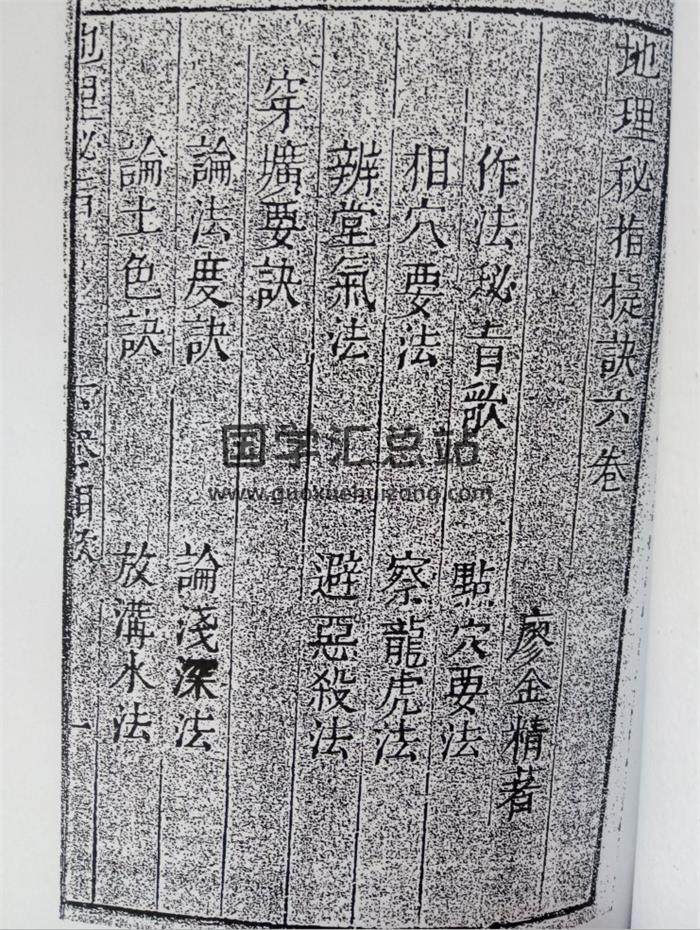 地理秘指捷訣六卷
廖金精著
作法秘旨歌 點穴要法
相穴要法 察龍虎法
辨堂氣法 避惡殺法
穿壙要訣
論法度訣 論淺深法
論土色訣 放溝水法
地理秘旨 卷目錄 一
国学汇总站
www.guoxuehuizong.com